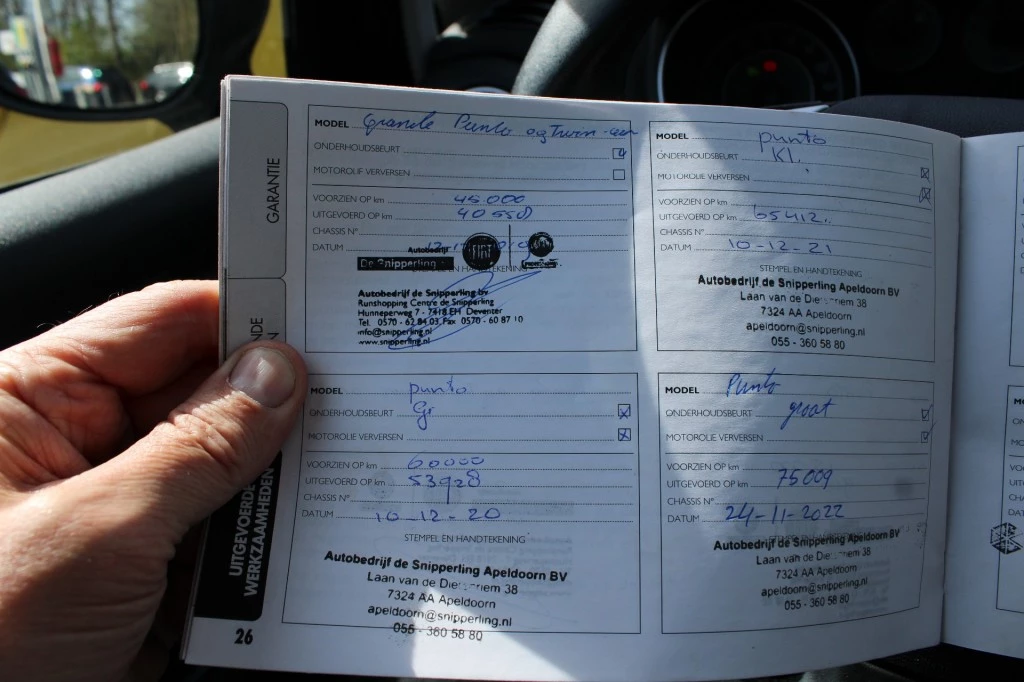 GARANTIE
UITGEVOERDE
WERKZAAMHEDEN
26
MODEL Grande Punto 0.9 Twin-air
ONDERHOUDSBEURT
MOTOROLIE VERVERSEN
VOORZIEN OP km 45.000
UITGEVOERD OP km 40 550
CHASSIS N°
DATUM
Autobedrijf
De Snipperling
FIAT
Autobedrijf de Snipperling bv
Runshopping Centre de Snipperling
Hunneperweg 7 - 7418 EH Deventer
Tel. 0570 - 62 84 03 Fax 0570 - 60 87 10
info@snipperling.nl
www.snipperling.nl
MODEL punto
ONDERHOUDSBEURT Kl.
MOTOROLIE VERVERSEN
VOORZIEN OP km
UITGEVOERD OP km 65412.
CHASSIS N°
DATUM 10-12-21
STEMPEL EN HANDTEKENING
Autobedrijf de Snipperling Apeldoorn BV
Laan van de 38
7324 AA Apeldoorn
apeldoorn@snipperling.nl
055 - 360 58 80
MODEL punto
ONDERHOUDSBEURT Gr
MOTOROLIE VERVERSEN
VOORZIEN OP km 60000
UITGEVOERD OP km 53928
CHASSIS N°
DATUM 10-12-20
STEMPEL EN HANDTEKENING
Autobedrijf de Snipperling Apeldoorn BV
Laan van de 38
7324 AA Apeldoorn
apeldoorn@snipperling.nl
055 - 360 58 80
MODEL Punto
ONDERHOUDSBEURT groot
MOTOROLIE VERVERSEN
VOORZIEN OP km
UITGEVOERD OP km 75009
CHASSIS N°
DATUM 24-11-2022
Autobedrijf de Snipperling Apeldoorn BV
Laan van de 38
7324 AA Apeldoorn
apeldoorn@snipperling.nl
055 - 360 58 80